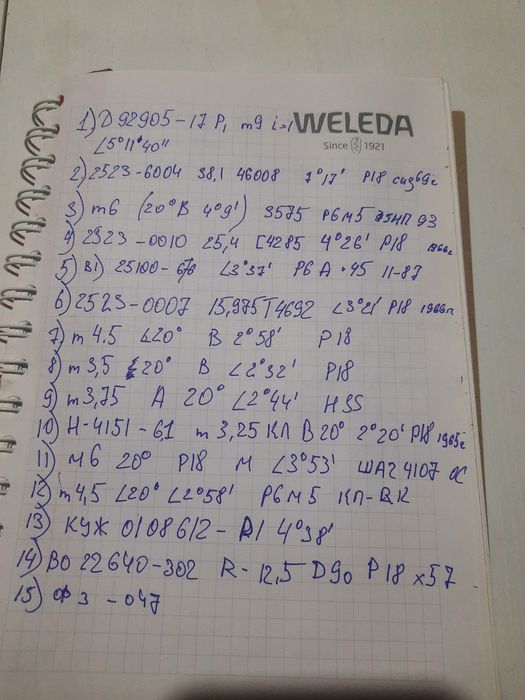 WELEDA
Since 1921
1) D 92905-17 P, m9 i=1
∠5°11'40"
2) 2523-6004 38,1 46008 7°17' P18 69г
3) m6 (20°В 4°9') 3575 Р6М5 93
4) 2523-0010 25,4 Г4285 4°26' Р18 1966г
5) В1) 25100-6/8 ∠3°37' Р6 А•45 11-87
6) 2523-0007 15,975Т4692 ∠3°21' Р18 1966г
7) m 4.5 ∠20° В 2°58' Р18
8) m 3,5 ∠20° В ∠2°32' Р18
9) m 3,75 А 20° ∠2°44' HSS
10) Н-4151-61 m 3,25 КЛ В 20° 2°20' Р18 1965г
11) М6 20° Р18 М ∠3°53' ШАГ 4107
12) m 4,5 ∠20° ∠2°58' Р6М5 КЛ-ВК
13) КУЖ 0108612- 4°38'
14) ВО 22640-302 R-12,5 D90 Р18 х57
15) ФЗ-047